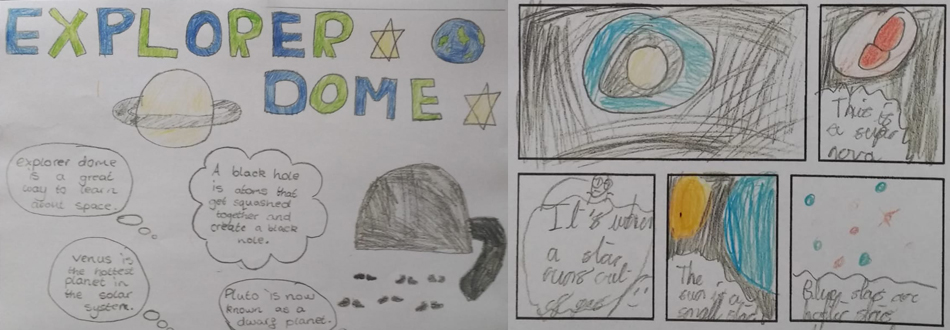 EXPLORER
DOME
explorer dome
is a great
way to learn
about space.
A black hole
is atoms that
get squashed
together and
create a black
hole.
Venus is
the hottest
planet in
the solar
system.
Pluto is now
known as a
dwarf planet.
This is
a super
nova
It's when
a star
runs out
of
The
sun is a
small star
Blue stars are
hotter stars